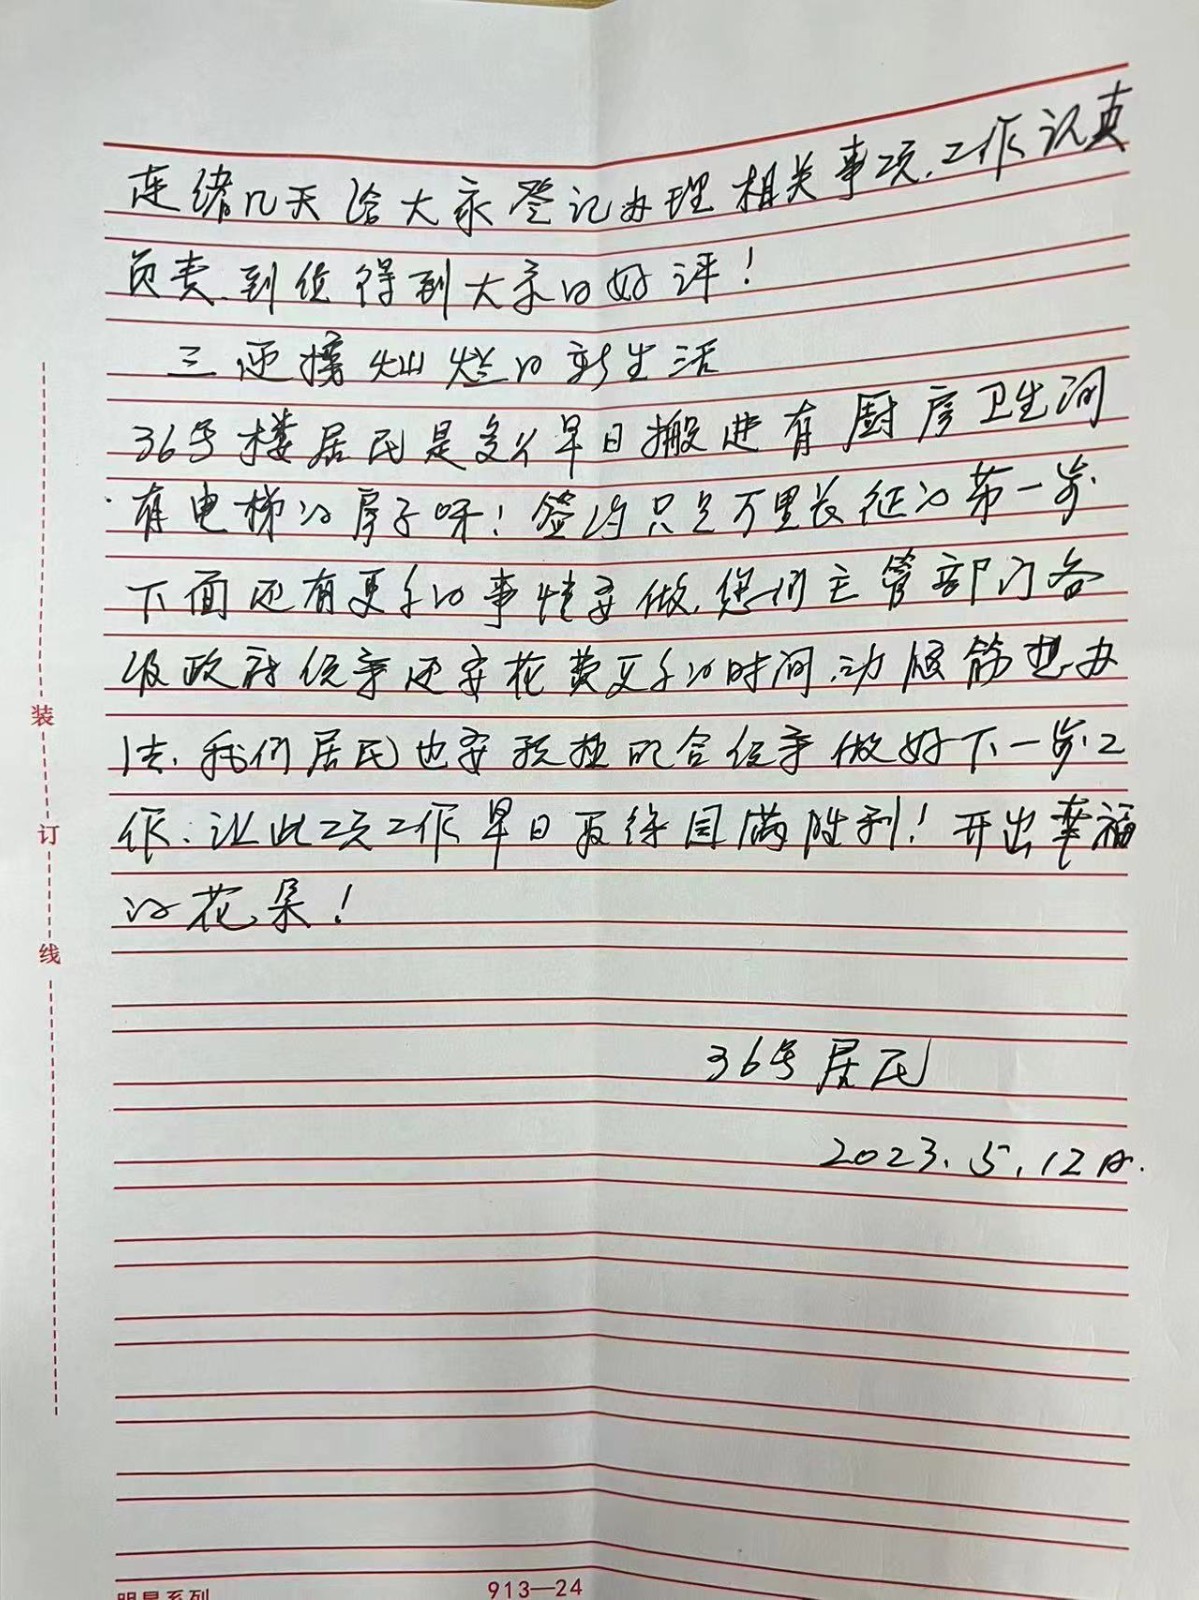 连续几天给大家登记办理相关事项.工作认真
负责.到位得到大家的好评!
三迎接灿烂的新生活
36号楼居民是多么早日搬进有厨房卫生间
有电梯的房子呀!签约只是万里长征的第一步.
下面还有更多的事情要做.您们主管部门各
级政府领导还要花费更多的时间.动脑筋想办
法.我们居民也要积极配合领导做好下一步工
作.让此项工作早日取得圆满胜利!开出幸福
的花朵!
36号居民
2023.5.12日.
装
订
线
明星系列
913—24